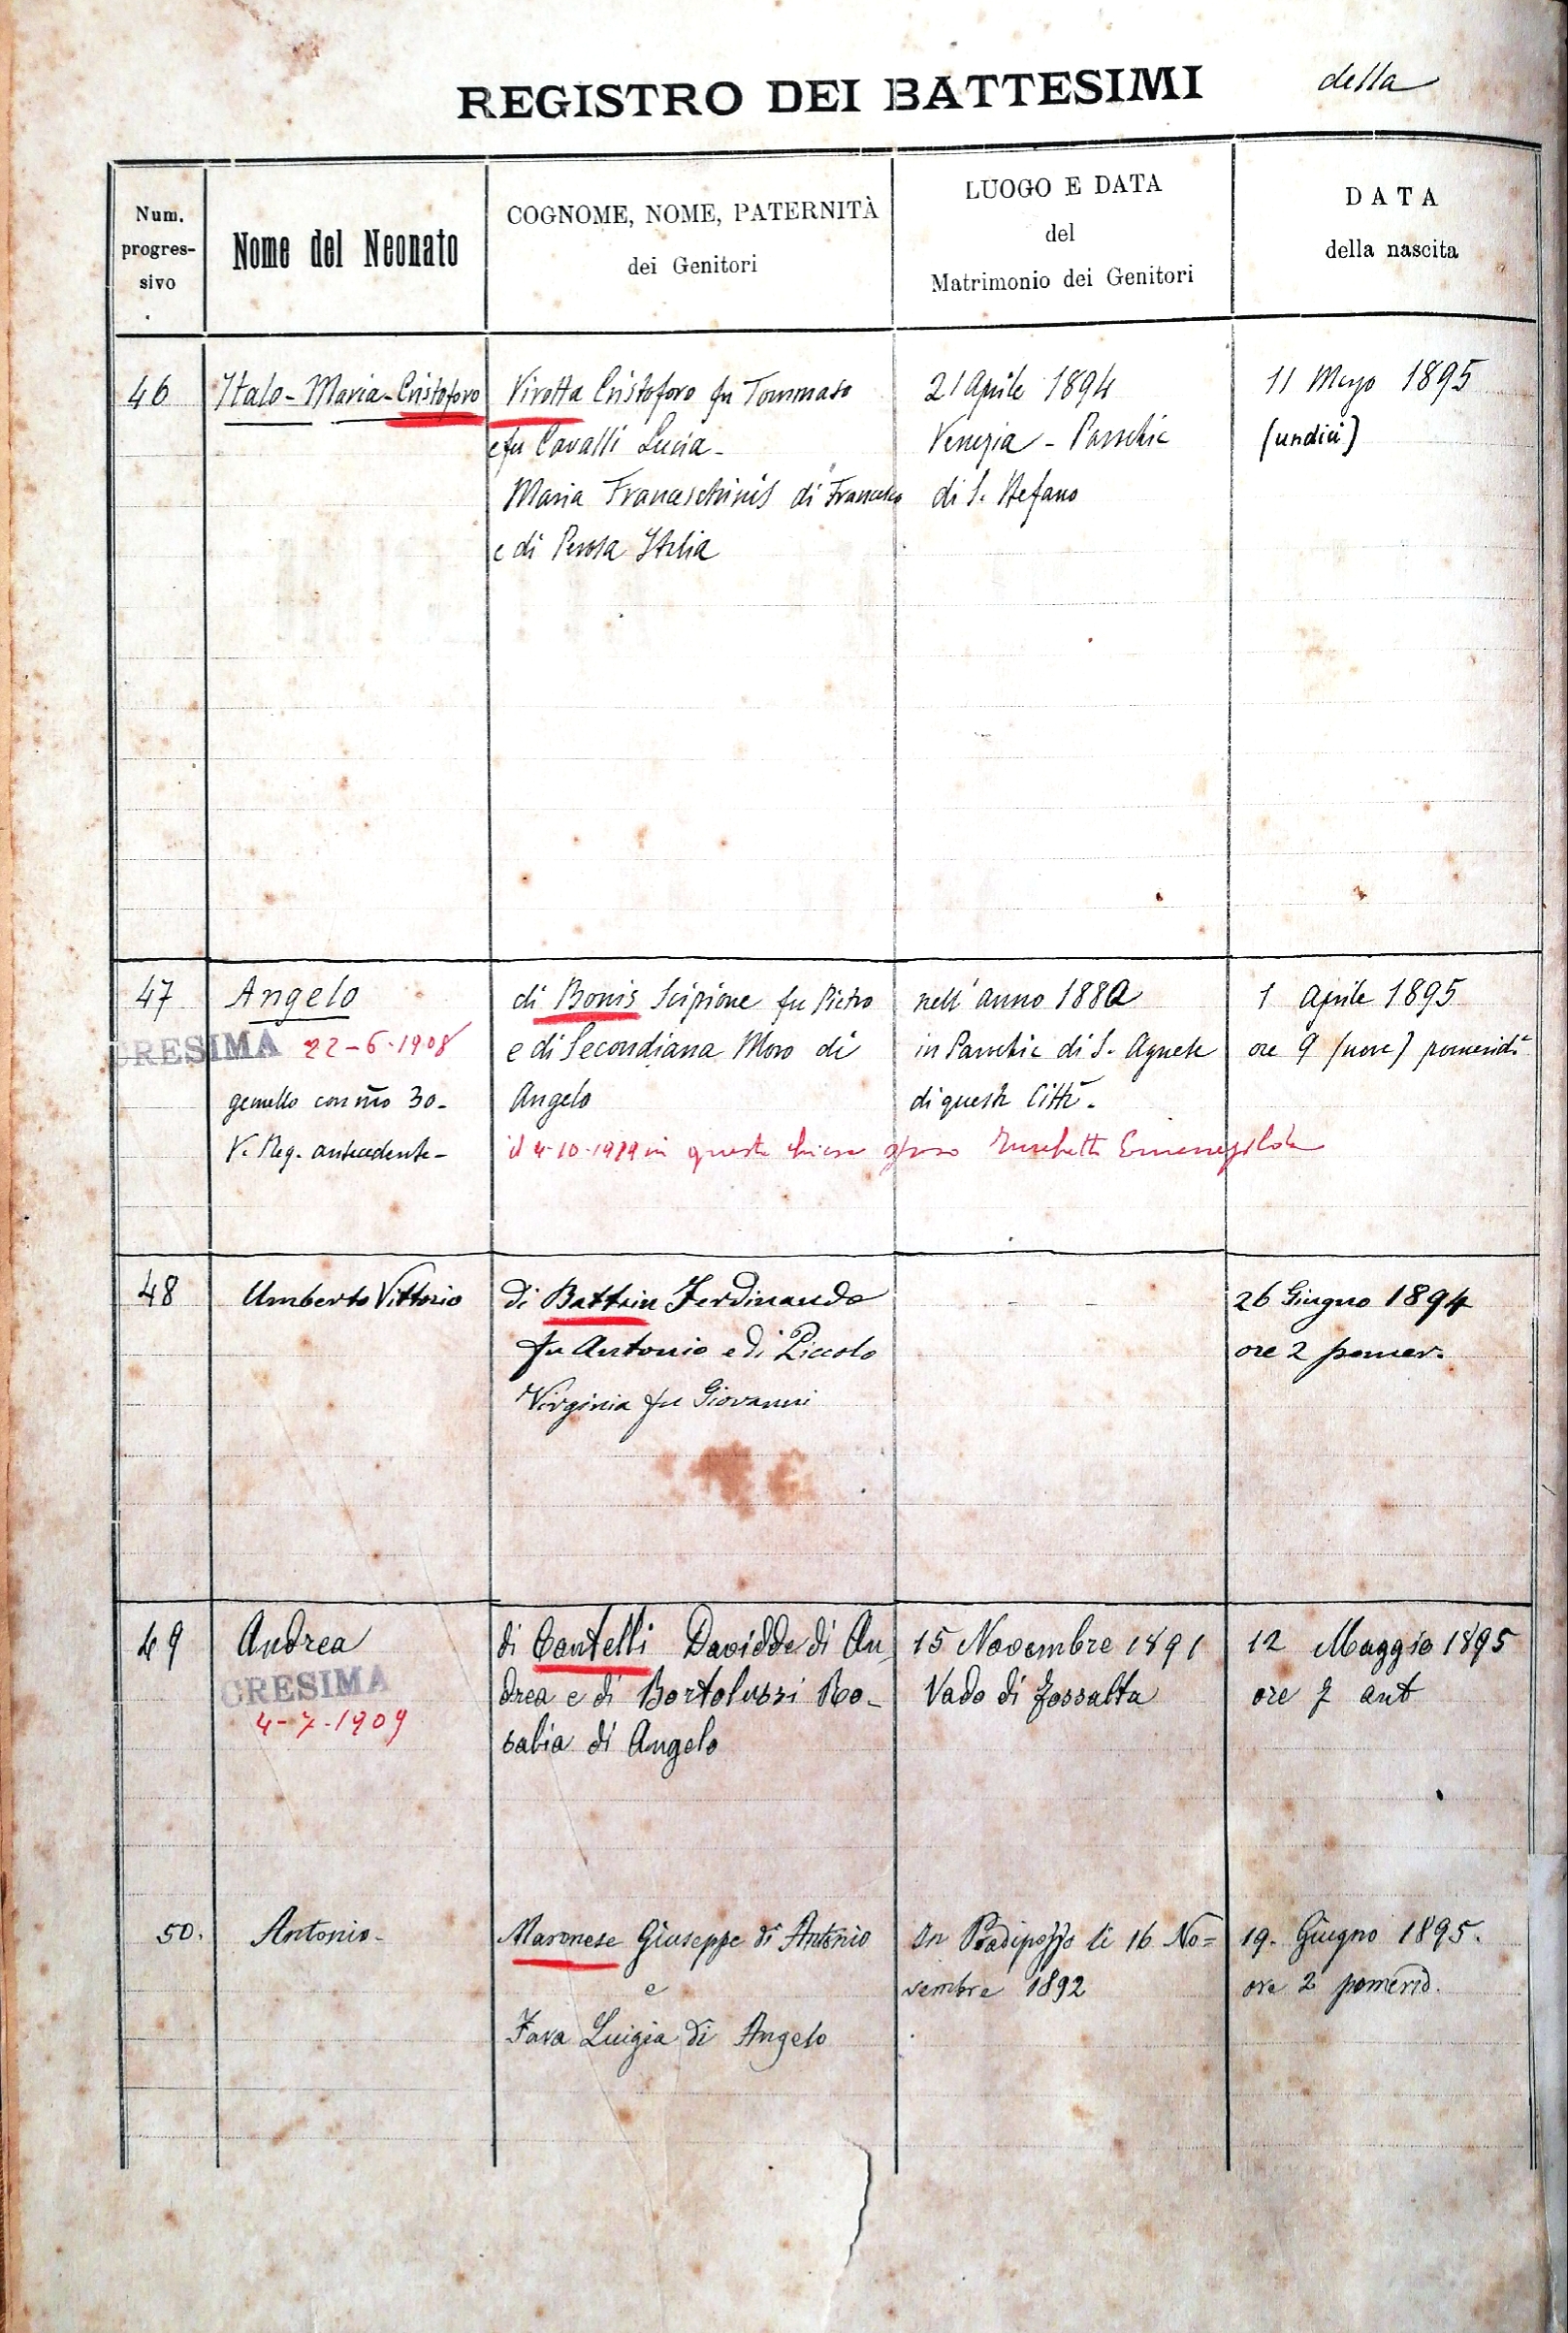 REGISTRO DEI BATTESIMI della
Num.
progres-
sivo
Nome del Neonato
COGNOME, NOME, PATERNITÀ
dei Genitori
LUOGO E DATA
del
Matrimonio dei Genitori
DATA
della nascita
46
Italo - Maria - Cristoforo
Virotta Cristoforo fu Tommaso
e fu Cavalli Lucia -
Maria Franceschinis di Francesco
e di Perosa Italia
21 Aprile 1894
Venezia - Parochia
di S. Stefano
11 1895
(undici)
47
Angelo
CRESIMA 22-6-1908
gemello con 30 -
V. Reg. antecedente -
di Bonis Scipione fu Pietro
e di Secondiana Moro di
Angelo
nell' anno 188
in Parochia di S. Agnese
di questa Città -
1 Aprile 1895
ore 9 (nove) pomerid.e
il 4-10- in questa chiesa sposò
48
Umberto Vittorio
di Battain Ferdinando
fu Antonio e di Piccolo
Virginia fu Giovanni
- -
26 Giugno 1894
ore 2 pomer.
49
Andrea
CRESIMA
4-7-1909
di Cantelli Davidde di An
drea e di Bortolussi Ro-
salia di Angelo
15 Novembre 1891
Vado di Fossalta
12 Maggio 1895
ore 7 ant
50.
Antonio -
Maronese Giuseppe di Antonio
e
Fava Luigia di Angelo
In Pradipozzo li 16 No=
vembre 1892
19. Giugno 1895.
ore 2 pomerid.